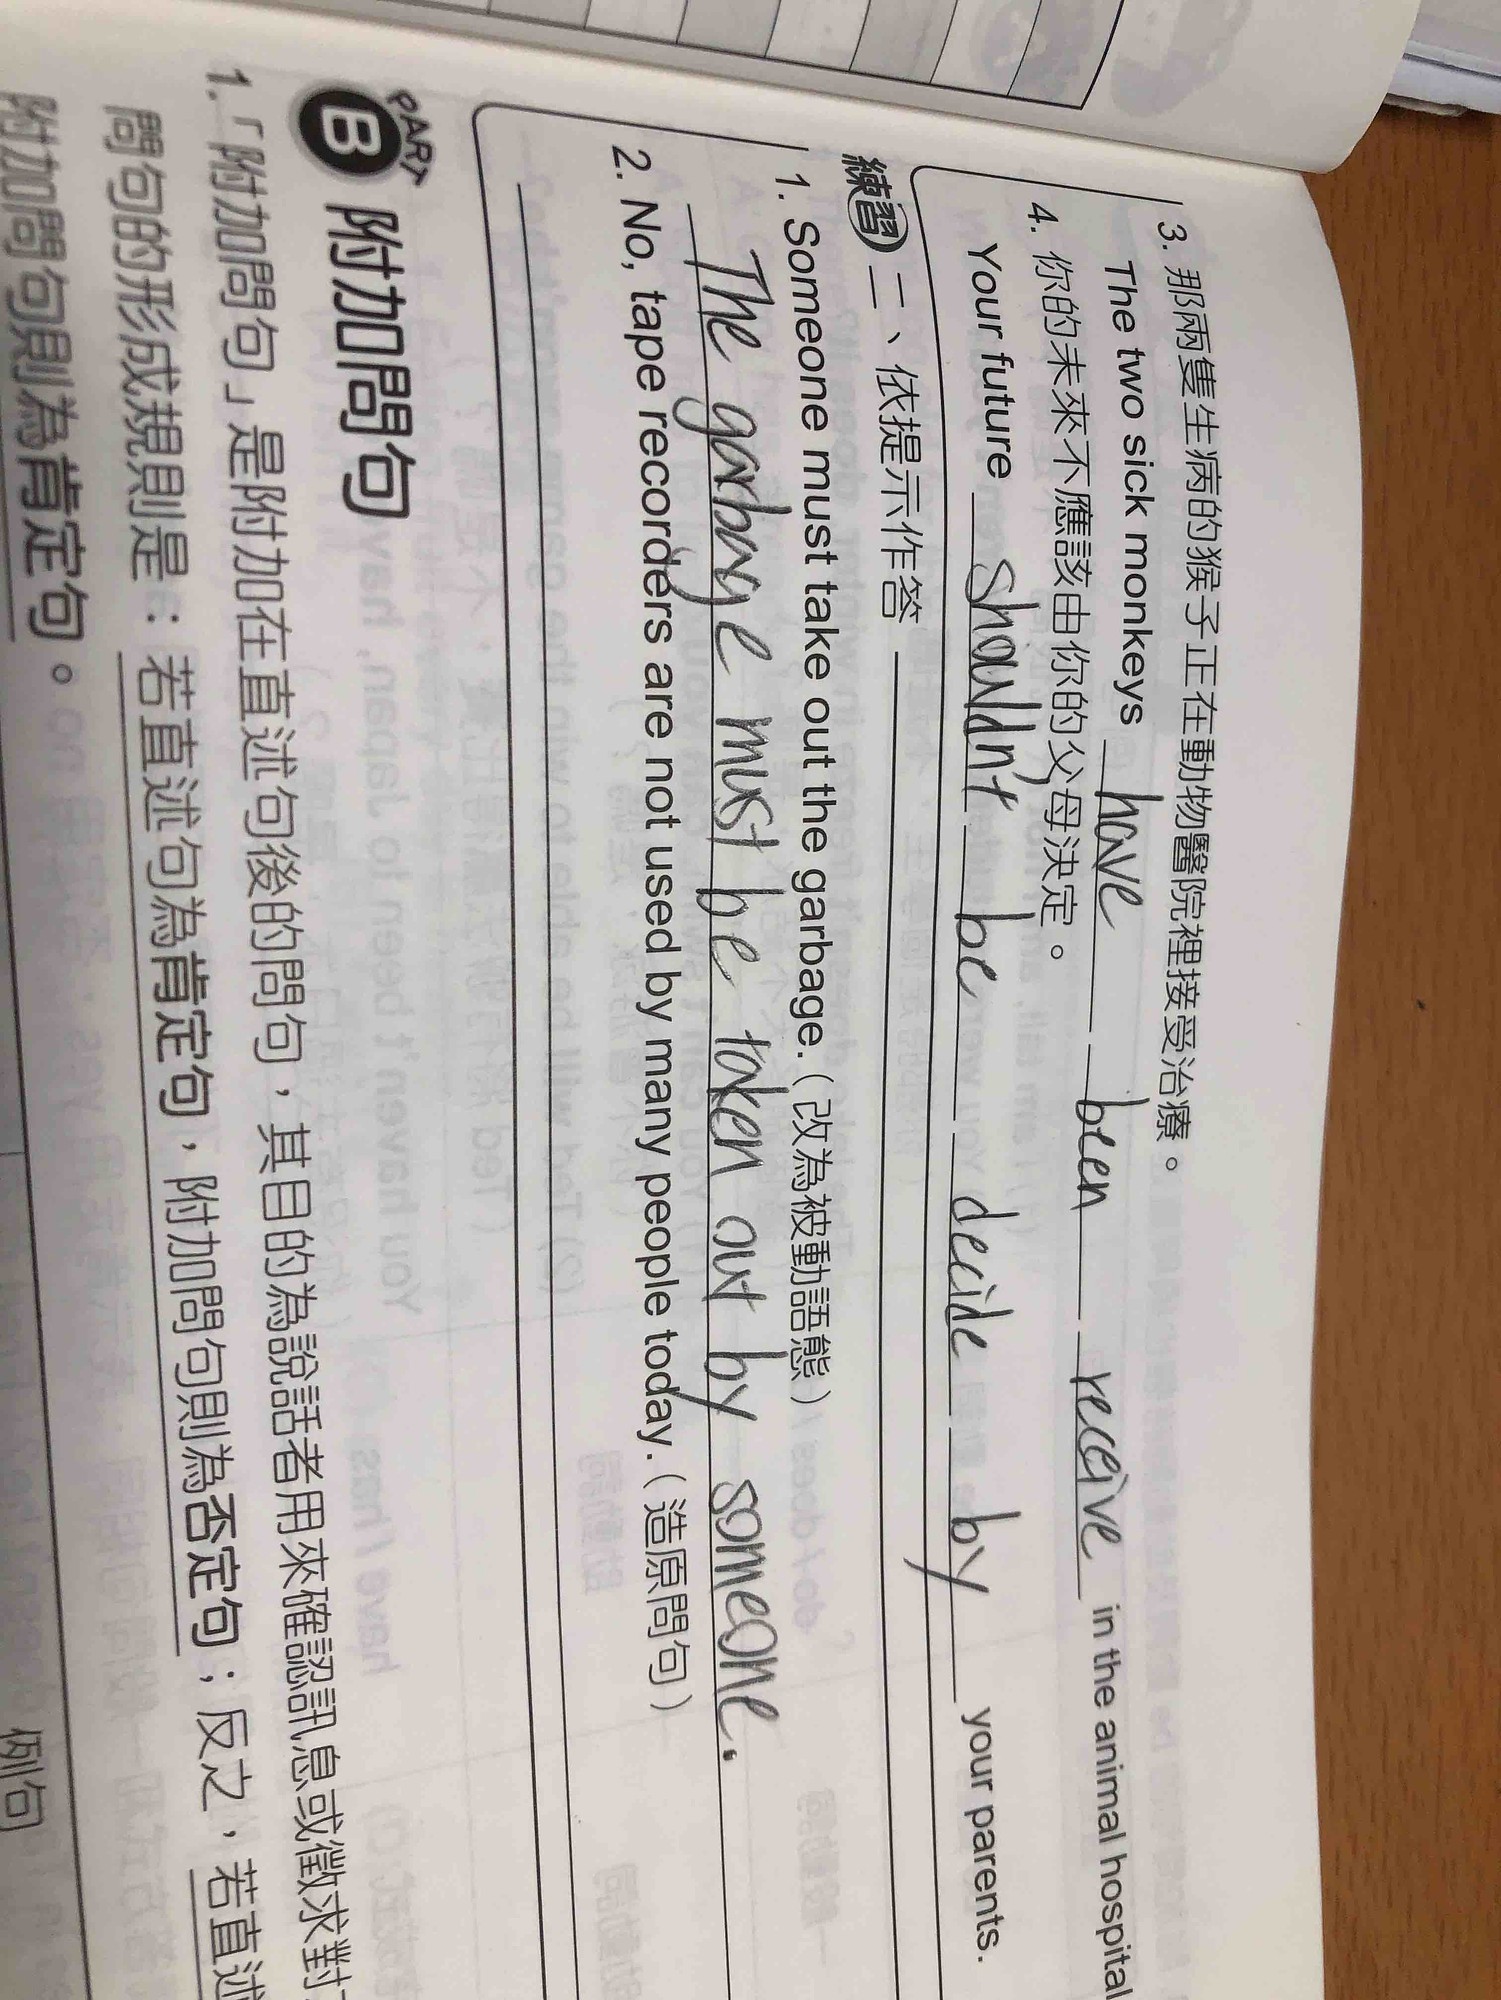 3. 那兩隻生病的猴子正在動物醫院裡接受治療。
The two sick monkeys have been receive in the animal hospital
4. 你的未來不應該由你的父母決定。
Your future shouldn't be decide by your parents.
練習 二、依提示作答
1. Someone must take out the garbage.(改為被動語態)
The garbage must be taken out by someone.
2. No, tape recorders are not used by many people today.(造原問句)
PART B 附加問句
1.「附加問句」是附加在直述句後的問句,其目的為說話者用來確認訊息或徵求對
問句的形成規則是:若直述句為肯定句,附加問句則為否定句;反之,若直述
附加問句則為肯定句。
例句